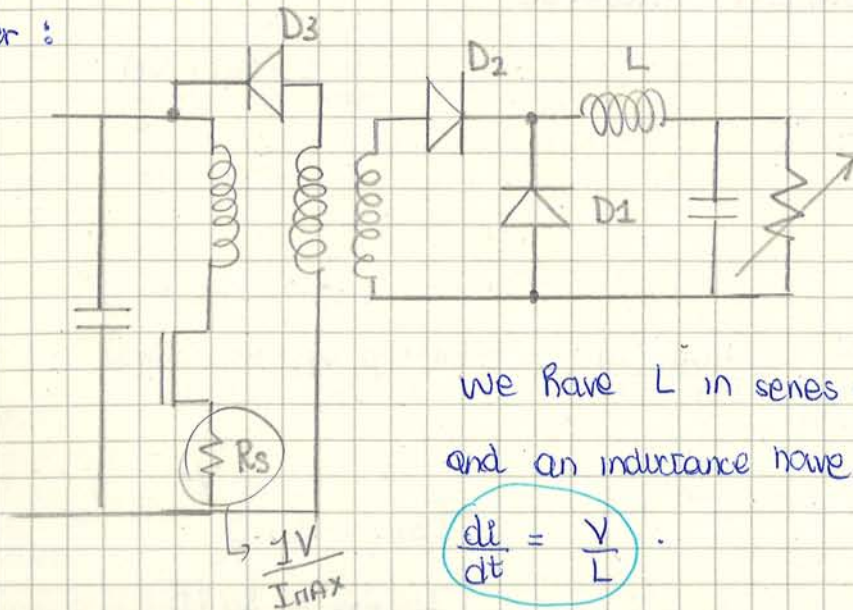 er :
D3
D2
L
D1
Rs
1V
IMAX
we have L in series
and an inductance have
di/dt = V/L .